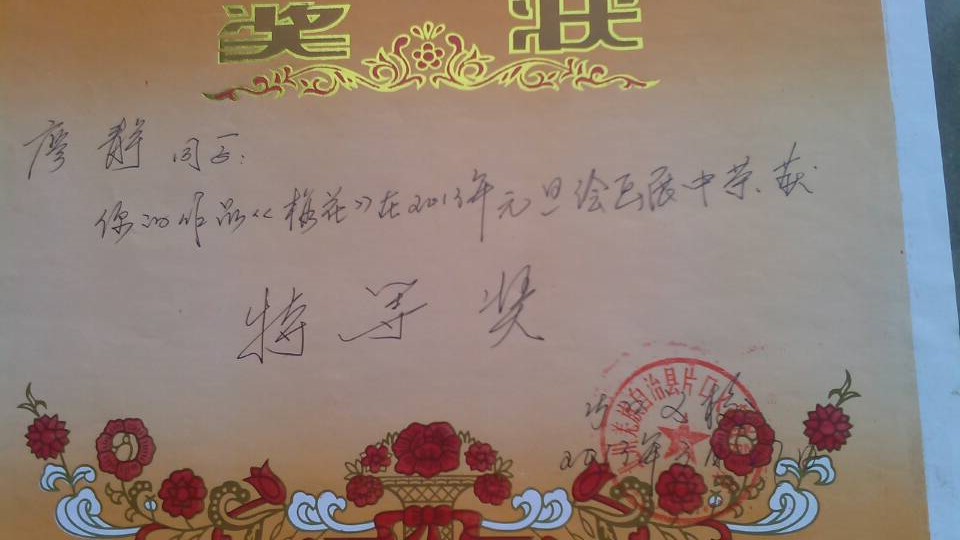 奖状
廖静同志:
你的作品《梅花》在2013年元旦绘画展中荣获
特等奖
羌族自治县片口
2013年